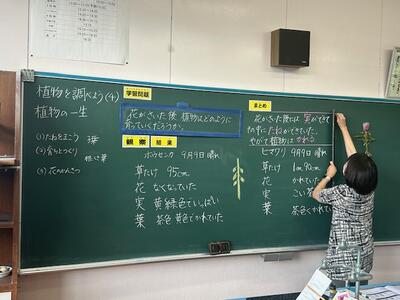 植物を調べよう(4)
植物の一生
(1)たねをまこう
(2)
(3)花のかんさつ
学習問題
花がさいた後 植物はどのように
育っていくだろうか。
観察 結果
ホウセンカ 9月9日 晴れ
草たけ 95cm
花 なくなっていた
実 黄緑色でいっぱい
葉 茶色 黄色でかれていた
まとめ
花がさいた後には実ができて
中にたねができていた。
やがて植物はかれる
ヒマワリ 9月9日 晴れ
草たけ 1m90cm
花 かれていた
実 こい茶
葉 茶色くかれて